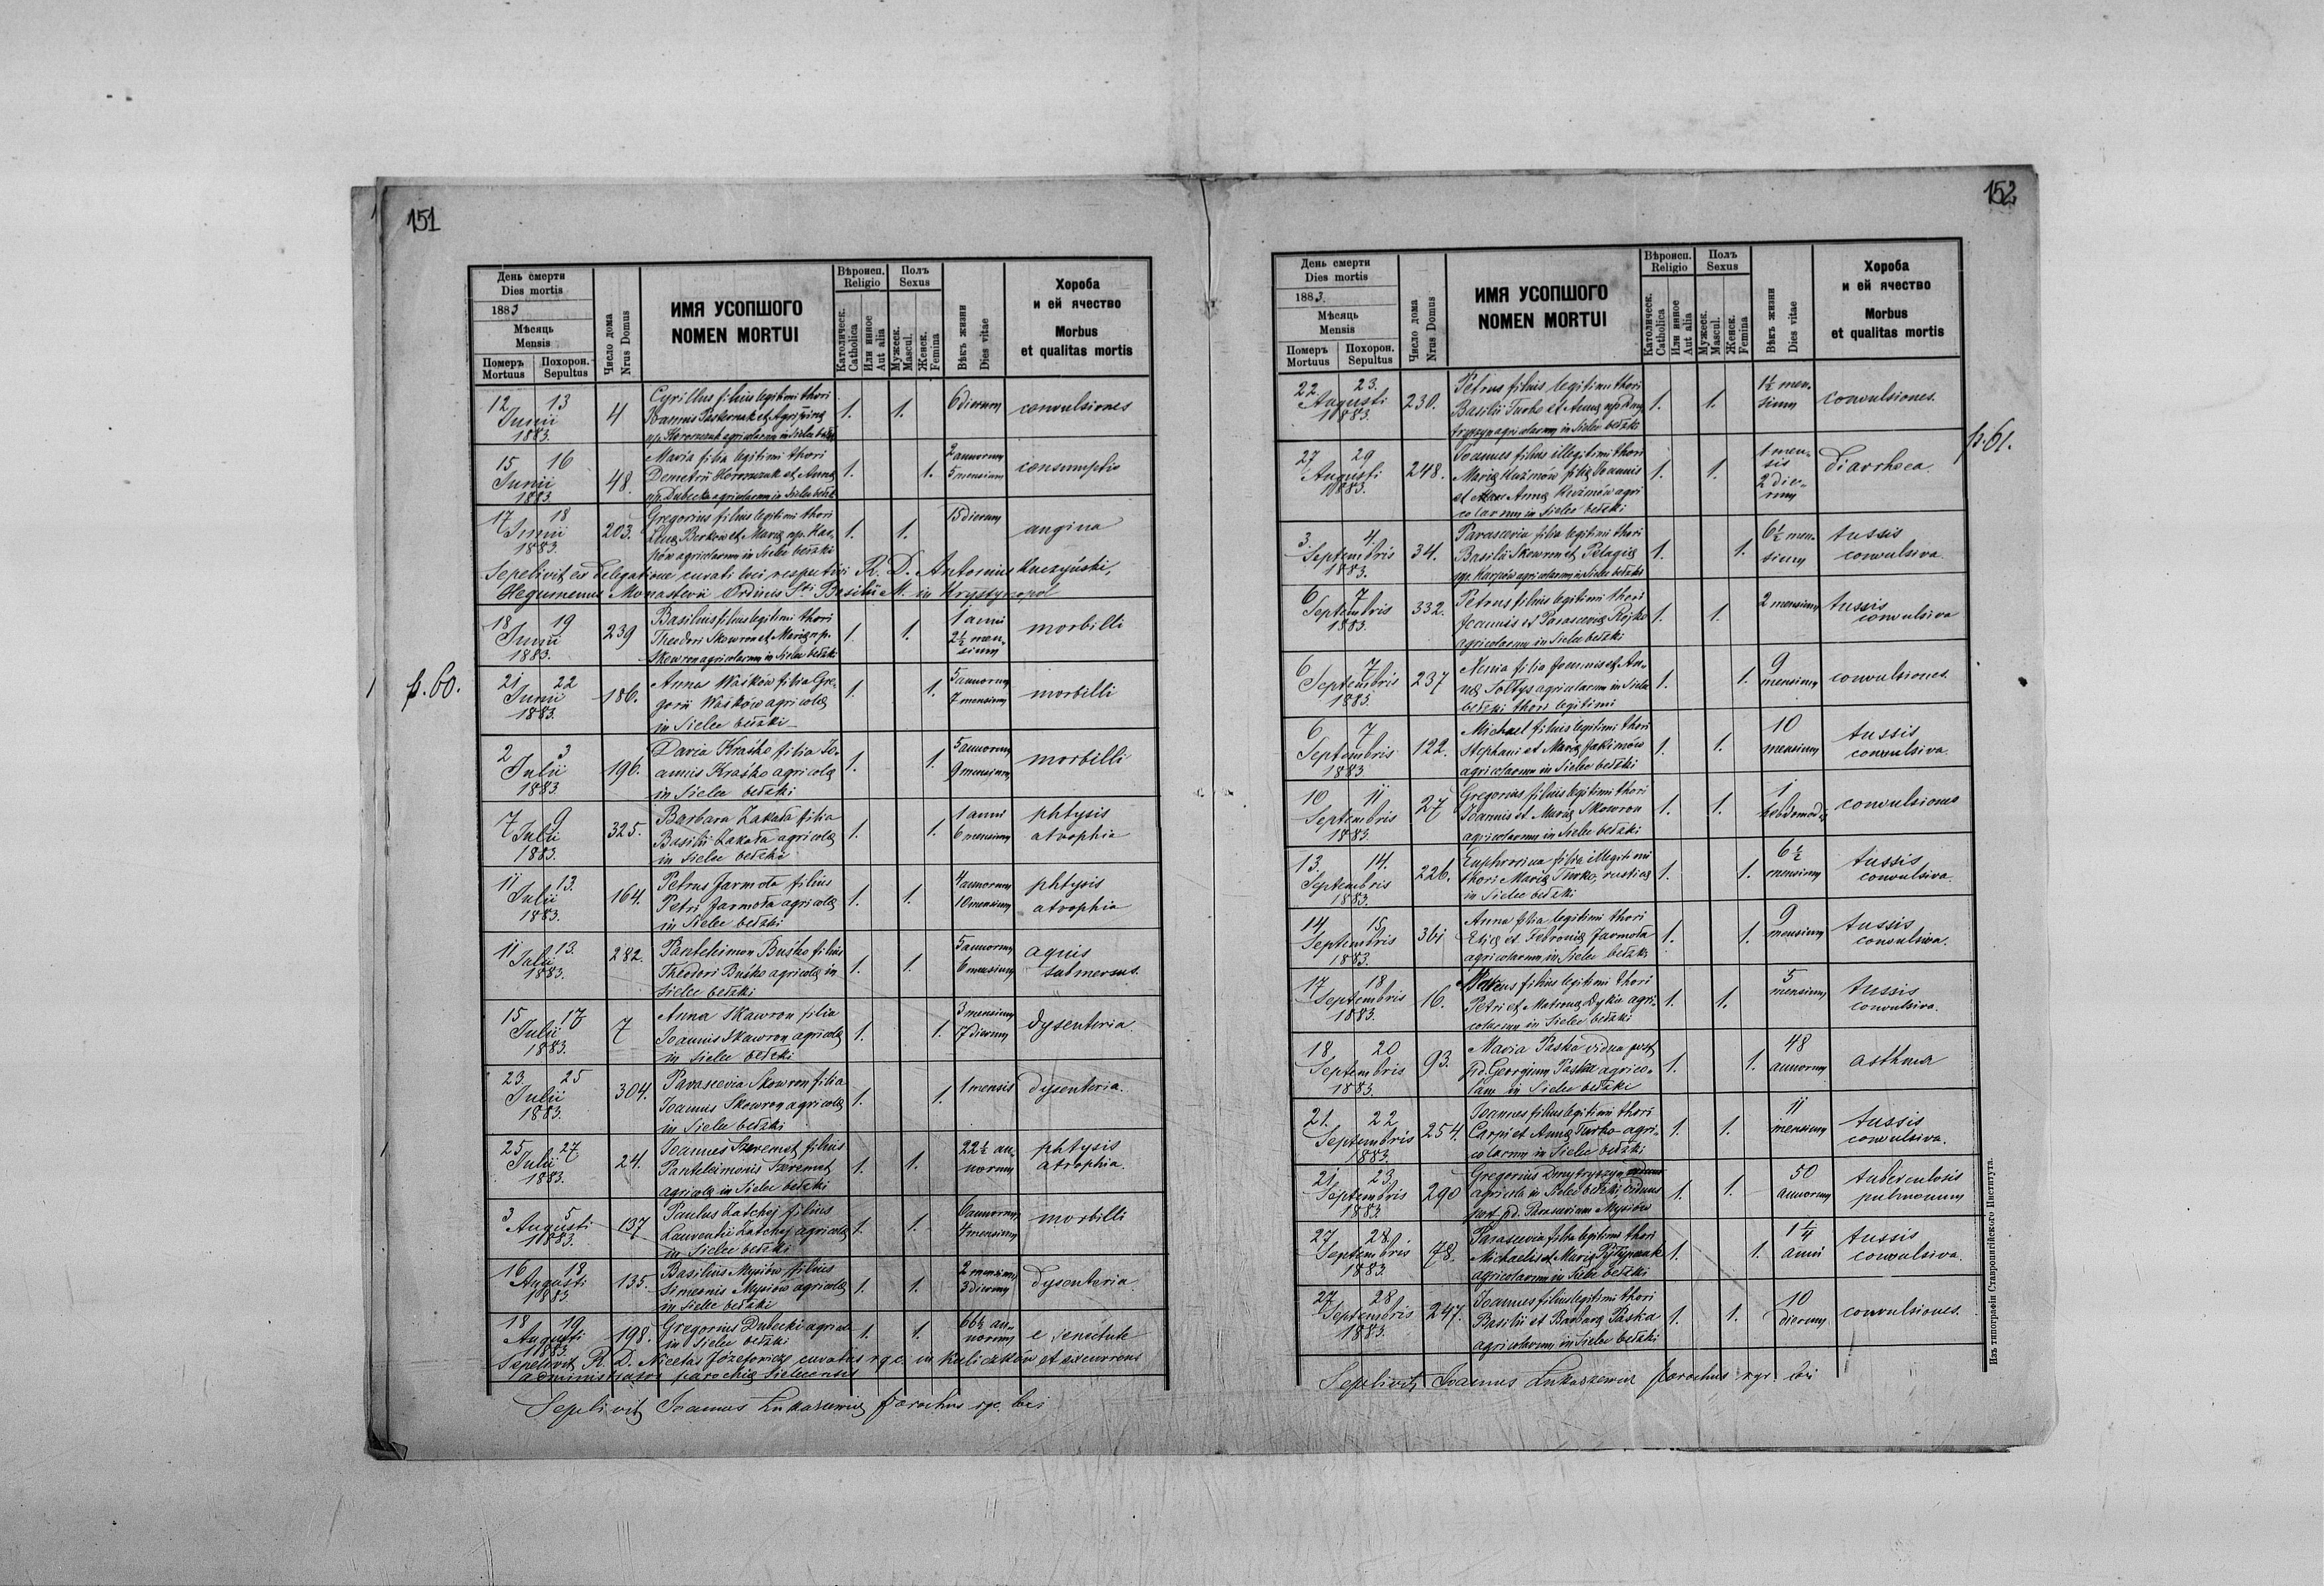 151
День смерти
Dies mortis
1883
Мѣсяць
Mensis
Померъ
Mortuus
Похорон.
Sepultus
Число дома
Nrus Domus
ИМЯ УСОПШОГО
NOMEN MORTUI
Вѣроисп.
Religio
Католическ.
Catholica
Или инное
Aut alia
Полъ
Sexus
Мужеск.
Mascul.
Женск.
Femina
Вѣкъ жизни
Dies vitae
Хороба
и ей ячество
Morbus
et qualitas mortis
12 13
Junii
1883.
4
Cyrillus filius legitimi thori
Joannis Pasternak et Agripinę
np. Horoszczuk agricolarum in Sielec bełzki
1. 1.
6 dierum
convulsiones
15 16
Junii
1883
48.
Maria filia legitimi thori
Demetrii et Annę
np. Dubecka agricolarum in Sielec bełzk
1. 1.
2 annorum
5 mensium
consumptio
17 18
Junii
1883.
203.
Gregorius filius legitimi thori
Lucę Berkow et Marię np. Kar-
pów agricolarum in Sielec bełzki
1. 1.
15 dierum
angina
Sepelivit ex delegatione curati loci respectivi R. D. Antonius Kuczyński,
Hegumenus Monasterii Ordinis Sti Basilii M. in Krystynopol
18 19
Junii
1883.
239
Basilius filius legitimi thori
Theodori Skowron et Marię np.
Skowron agricolarum in Sielec bełzki
1. 1.
1 anni
2½ men-
sium
morbilli
p. 60.
21 22
Junii
1883.
186.
Anna Waśków filia Gre-
gorii Waśków agricolę
in Sielec bełzki
1. 1.
5 annorum
7 mensium
morbilli
2 3
Julii
1883.
196.
Daria Kraśko filia Jo-
annis Kraśko agricolę
in Sielec bełzki
1. 1.
5 annorum
9 mensium
morbilli
7 9
Julii
1883.
325.
Barbara Zakała filia
Basilii Zakała agricolę
in Sielec bełzki
1. 1.
1 anni
6 mensium
phtysis
atrophia
11 13.
Julii
1883.
164.
Petrus Jarmoła filius
Petri Jarmoła agricolę
in Sielec bełzki
1. 1.
4 annorum
10 mensium
phtysis
atrophia
11 13.
Julii
1883.
282.
Panteleimon Buśko filius
Theodori Buśko agricolę in
Sielec bełzki
1. 1.
5 annorum
6 mensium
aquis
submersus.
15 17
Julii
1883.
7
Anna Skawron filia
Joannis Skawron agricolę
in Sielec bełzki
1. 1.
3 mensium
17 dierum
dysenteria.
23 25
Julii
1883.
304.
Parascevia Skowron filia
Joannis Skowron agricolę
in Sielec bełzki
1. 1.
1 mensis
dysenteria.
25 27
Julii
1883.
24.
Joannes Szeremet filius
Panteleimonis Szeremet
agricolę in Sielec bełzki
1. 1.
22½ an-
norum
phtysis
atrophia.
3 5
Augusti
1883.
137
Paulus Łatchej filius
Laurentii Łatchej agricolę
in Sielec bełzki
1. 1.
6 annorum
4 mensium
morbilli
16 18
Augusti
1883
135.
Basilius Mysiów filius
Simeonis Mysiów agricolę
in Sielec bełzki
1. 1.
2 mensium
3 dierum
dysenteria
18 19
Augusti
1883.
198.
Gregorius Dubecki agricola
in Sielec bełzki
1. 1.
66½ an-
norum
e senectute
Sepelivit R. D. Nicetas Józefowicz curatus r g c. in Kuliczków et excurrens
administrator parochię Sielecensis
Sepelivit Joannes Łukaszewicz parochus rgc. loci
152
День смерти
Dies mortis
1883.
Мѣсяць
Mensis
Померъ
Mortuus
Похорон.
Sepultus
Число дома
Nrus Domus
ИМЯ УСОПШОГО
NOMEN MORTUI
Вѣроисп.
Religio
Католическ.
Catholica
Или инное
Aut alia
Полъ
Sexus
Мужеск.
Mascul.
Женск.
Femina
Вѣкъ жизни
Dies vitae
Хороба
и ей ячество
Morbus
et qualitas mortis
22 23.
Augusti
1883.
230.
Petrus filius legitimi thori
Basilii Turko et Annę np Dmy-
tryszyn agricolarum in Sielec bełzki
1. 1.
1½ men-
sium
convulsiones.
p. 61.
27 29
Augusti
1883.
248.
Joannes filius illegitimi thori
Marię Kuźmów filię Joannis
et Annę Kuźmów agri
colarum in Sielec bełzki
1. 1.
1 men-
sis
2 die-
rum
diarrhoea.
3. 4.
Septembris
1883.
34.
Parascevia filia legitimi thori
Basilii Skowron et Pelagię
np. Karpów agricolarum in Sielec bełzki
1. 1.
6½ men-
sium
tussis
convulsiva.
6 7
Septembris
1883.
332.
Petrus filius legitimi thori
Joannis et Parascevię Rojko
agricolarum in Sielec bełzki
1. 1.
2 mensium
tussis
convulsiva
6 7
Septembris
1883.
237
Xenia filia Joannis et An-
nę Tołtys agricolarum in Sielec
bełzki thori legitimi
1. 1.
9
mensium
convulsiones.
6 7
Septembris
1883
122.
Michael filius legitimi thori
Stephani et Marię Jakimów
agricolarum in Sielec bełzki
1. 1.
10
mensium
tussis
convulsiva.
10 11
Septembris
1883.
27
Gregorius filius legitimi thori
Joannis et Marię Skowron
agricolarum in Sielec bełzki
1. 1.
1
hebdomadę
convulsiones
13. 14.
Septembris
1883.
226.
Euphrosina filia illegitimi
thori Marię Turko, rusticę
in Sielec bełzki
1. 1.
6½
mensium
tussis
convulsiva.
14 15
Septembris
1883.
361
Anna filia legitimi thori
Elię et Febronię Jarmoła
agricolarum in Sielec bełzki
1. 1.
9
mensium
tussis
convulsiva.
17 18
Septembris
1883.
16.
filius legitimi thori
Petri et Matronę Dykiv agri-
colarum in Sielec bełzki
1. 1.
5
mensium
tussis
convulsiva.
18 20
Septembris
1883.
93.
Maria Paśka vidua post
pd. Georgium Paśka agrico-
lam in Sielec bełzki
1. 1.
48
annorum
asthma
21. 22
Septembris
1883.
254.
Joannes filius legitimi thori
Carpi et Annę Turko agri-
colarum in Sielec bełzki
1. 1.
11
mensium
tussis
convulsiva.
21 23.
Septembris
1883.
290
Gregorius Dmytryszyn
agricola in Sielec bełzki, viduus
post pd. Parasceviam Mysiów
1. 1.
50
annorum
tuberculosis
pulmonum
27 28.
Septembris
1883.
78.
Parascevia filia legitimi thori
Michaelis et Marię Pyłypczuk
agricolarum in Sielec bełzki
1. 1.
1¼
anni
tussis
convulsiva.
27 28
Septembris
1883.
247.
Joannes filius legitimi thori
Basilii et Barbarę Paśka
agricolarum in Sielec bełzki
1. 1.
10
dierum
convulsiones.
Sepelivit Joannes Łukaszewicz parochus rgc. loci
Изъ типографіи Ставропигійского Института.